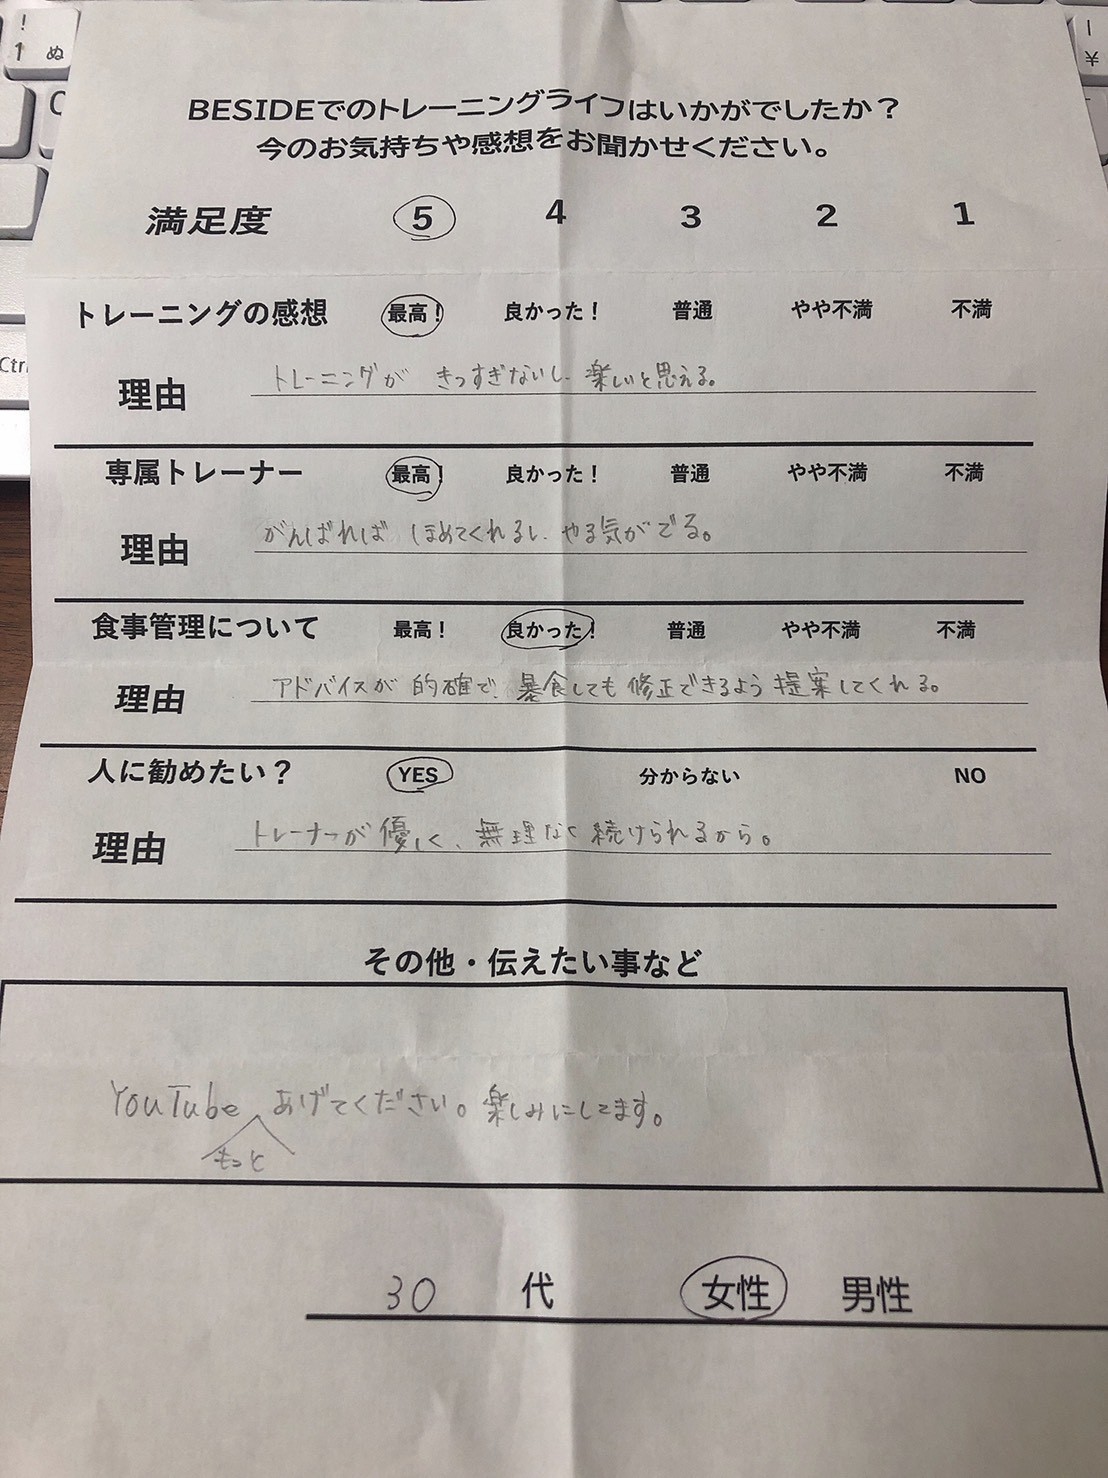 BESIDEでのトレーニングライフはいかがでしたか？
今のお気持ちや感想をお聞かせください。
満足度 5 4 3 2 1
トレーニングの感想 最高！ 良かった！ 普通 やや不満 不満
理由 トレーニングが きつすぎないし、楽しいと思える。
専属トレーナー 最高！ 良かった！ 普通 やや不満 不満
理由 がんばれば ほめてくれるし、やる気がでる。
食事管理について 最高！ 良かった！ 普通 やや不満 不満
理由 アドバイスが 的確で、暴食しても 修正できるよう 提案してくれる。
人に勧めたい？ YES 分からない NO
理由 トレーナーが優しく、無理なく続けられるから。
その他・伝えたい事など
YouTube あげてください。楽しみにしてます。
もっと
30 代 女性 男性
! 
1 ぬ
Ctrl
¥